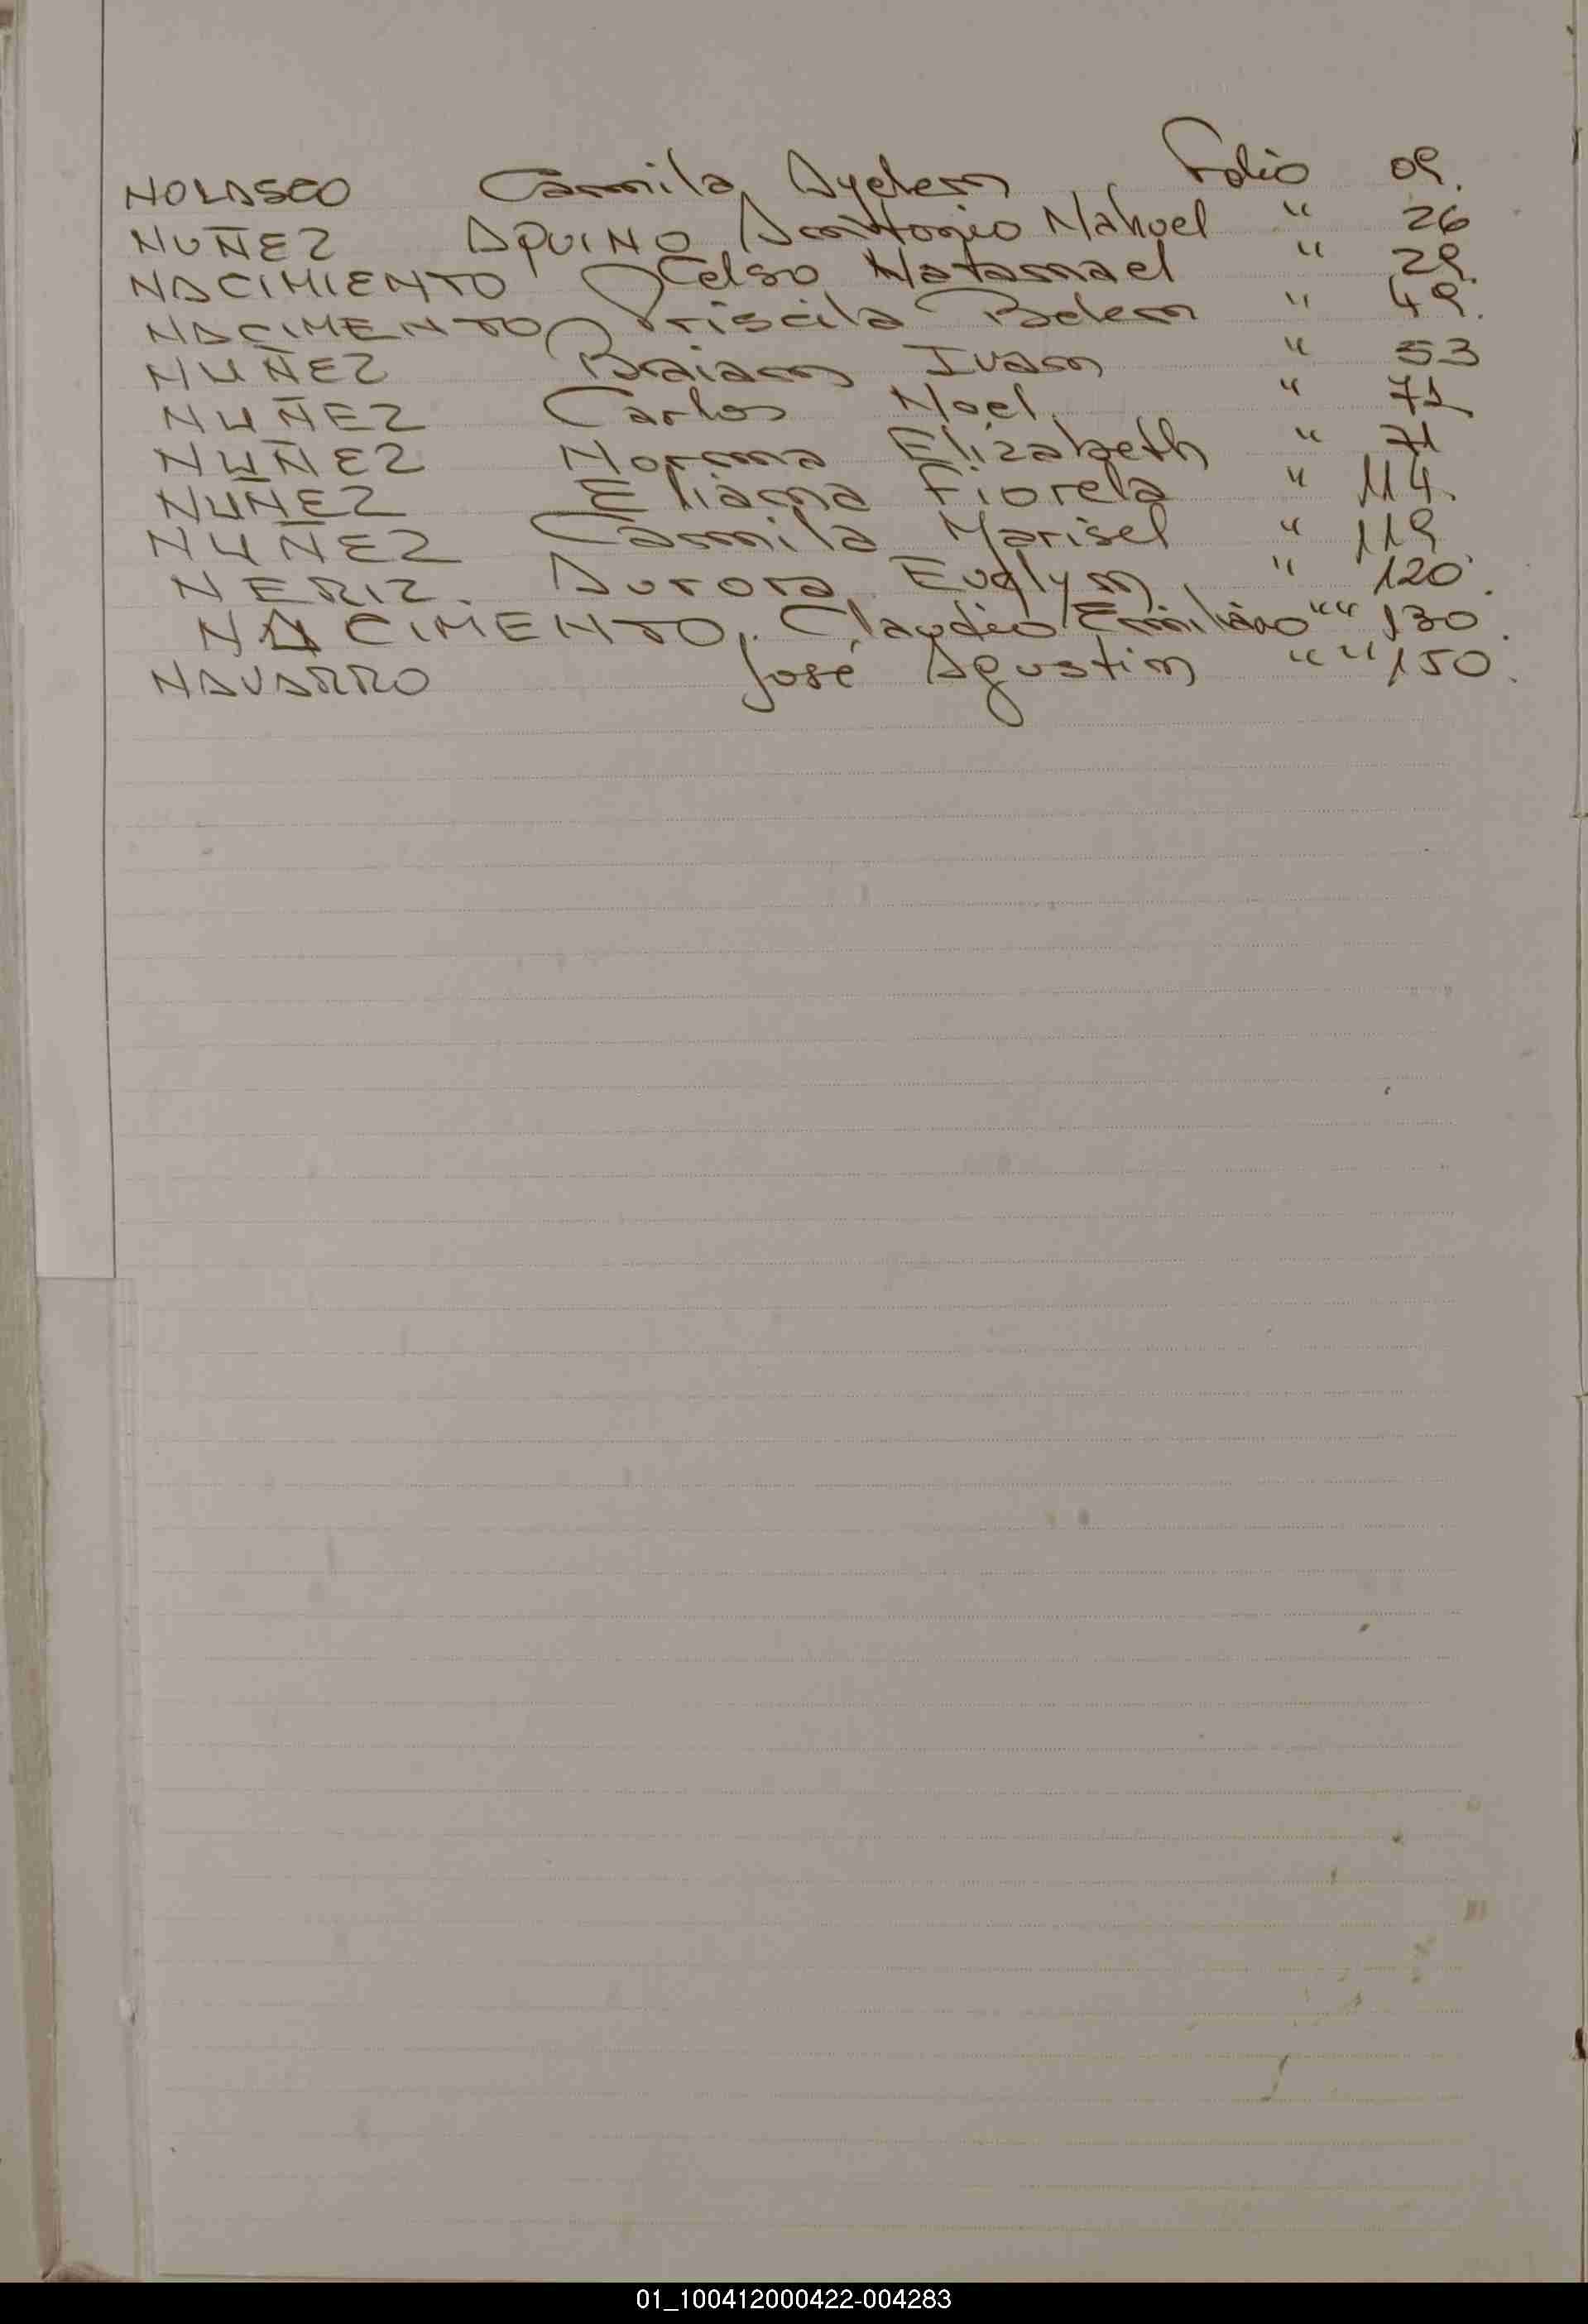 NOLASCO Camila Ayelen Folio 09.
NUÑEZ AQUINO Antonio Manuel " 26
NACIMIENTO Celso Natanael " 29.
NACIMENTO Priscila Belen " 49.
NUÑEZ Braian Ivan " 53
NUÑEZ Carlos Noel. " 71
NUÑEZ Norma Elizabeth " 71
NUÑEZ Eliana Fiorela " 114.
NUÑEZ Camila Marisel " 119
NERIZ. Aurora Evelyn " 120.
NACIMENTO. Claudio Emiliano "" 130.
NAVARRO José Agustin "" 150.
01_100412000422-004283